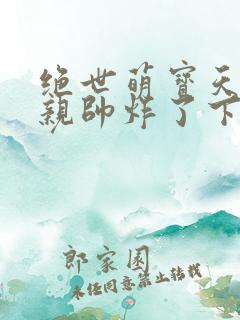 绝世萌寶天
親帥炸了下
郎家園
未经同意禁止转载